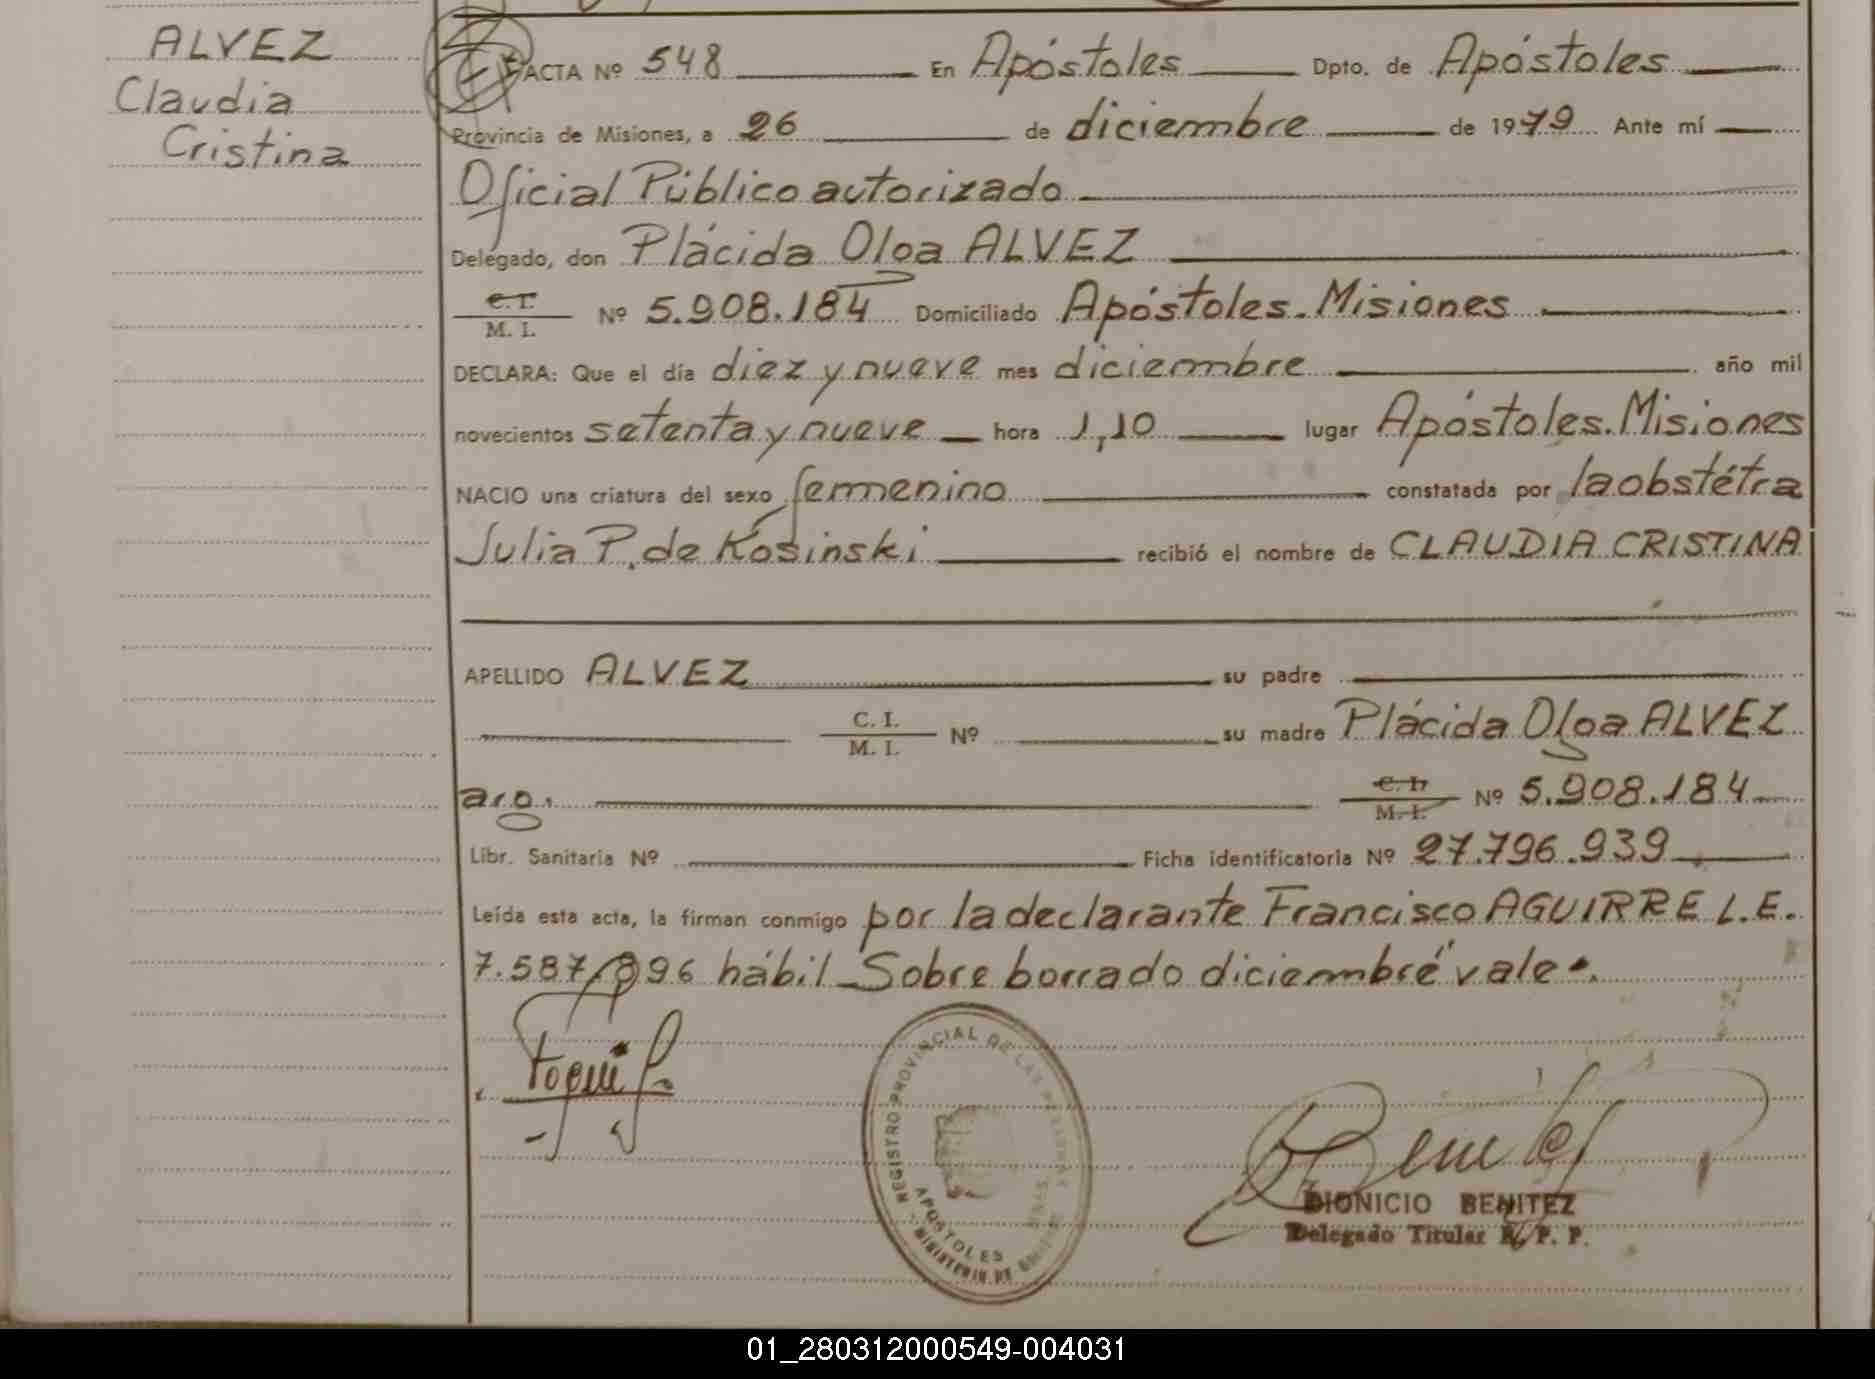 ALVEZ
Claudia
Cristina
ACTA Nº 548 En Apóstoles Dpto. de Apóstoles
Provincia de Misiones, a 26 de diciembre de 1979 Ante mí
Oficial Público autorizado
Delegado, don Plácida Olga ALVEZ
C.I.
M. I. Nº 5.908.184 Domiciliado Apóstoles. Misiones
DECLARA: Que el día diez y nueve mes diciembre año mil
novecientos setenta y nueve hora 1,10 lugar Apóstoles. Misiones
NACIO una criatura del sexo femenino constatada por la obstétra
Julia P. de Kosinski recibió el nombre de CLAUDIA CRISTINA
APELLIDO ALVEZ su padre
C. I.
M. I. Nº su madre Plácida Olga ALVEZ
arg. C. I.
M. I. Nº 5.908.184
Libr. Sanitaria Nº Ficha identificatoria Nº 27.796.939
Leída esta acta, la firman conmigo por la declarante Francisco AGUIRRE L.E.
7.587.896 hábil_Sobre borrado diciembre" vale.
REGISTRO PROVINCIAL DE LAS PERSONAS
APOSTOLES
MINISTERIO DE
Benitez
DIONICIO BENITEZ
Delegado Titular R. P. P.
01_280312000549-004031